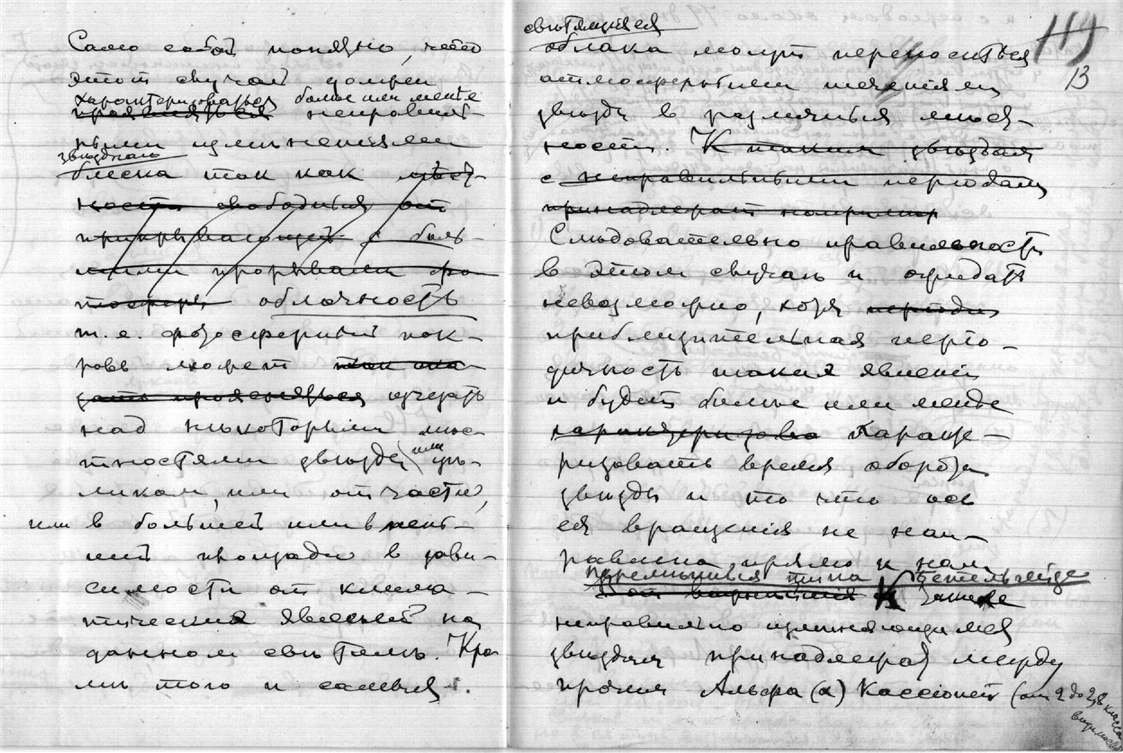 Само собой понятно, что
этот случай должен
характеризоваться более или менѣе
проявляться неправиль-
ными измѣненiями
звѣзднаго
блеска так как мѣст-
ность свободная от
прикрывающей с боль-
шими прорывами фо-
тосферы облачность
т. е. фотосферный пок-
ровъ может так ска-
зать проясняться исчезать
над нѣкоторыми мѣс-
тностями звѣзды или цѣ-
ликом или отчасти,
или в большей или в мень-
шей площади в зави-
симости от клима-
тических явленiй на
данном свѣтилѣ. Кро
мѣ того и самыя
свѣтящiяся
облака могут переноситься
атмосферными теченiями
звѣзды в различныя мѣст-
ности. К таким звѣздам
с неправильными перiодами
принадлежат например
Слѣдовательно правильности
в этом случаѣ и ожидать
невозможно, хотя перiодич
приблизительная перiо-
дичность таких явленiй
и будет болѣе или менѣе
характеризова характе-
ризовать время оборота
звѣзды и то что ось
ея вращенiя не нап-
равлена прямо к нам
перемѣнныя типа Бетельгейзе
К таким же
неправильно измѣняющимся
звѣздам принадлежат между
прочим Альфа (α) Кассiопеи (от 2 до 2,8 класса
видимости
119
13